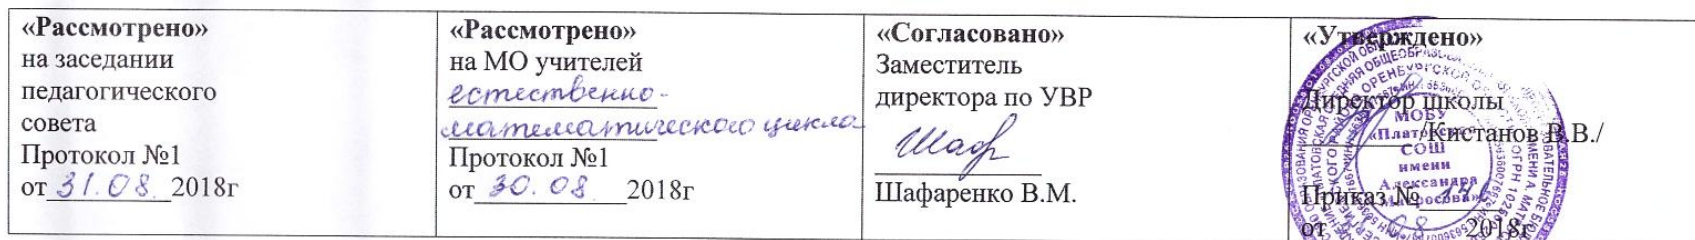 «Рассмотрено»
на заседании
педагогического
совета
Протокол №1
от 31.08. 2018г
«Рассмотрено»
на МО учителей
естественно-
математического цикла
Протокол №1
от 30.08 2018г
«Согласовано»
Заместитель
директора по УВР
Шаф
Шафаренко В.М.
«Утверждено»
Директор школы
/Кистанов В.В./
Приказ №
от 08 2018г
МОБУ
«Платовская
СОШ
имени
Александра
Матросова»